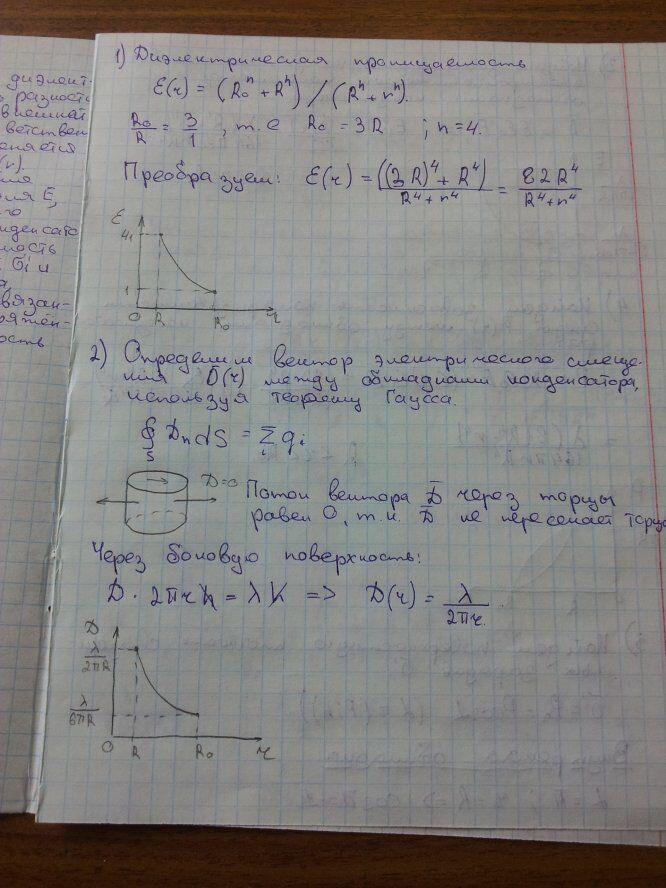 диэлект-
разность
внешней
ветствен
еняется
1) Диэлектрическая проницаемость
ε(r) = (R₀ⁿ + Rⁿ) / (Rⁿ + rⁿ).
R₀/R = 3/1 , т.е R₀ = 3R ; n = 4.
Преобразуем: ε(r) = ((3R)⁴ + R⁴)/(R⁴ + r⁴) = 82R⁴/(R⁴ + r⁴)
ε
41
1
0 R R₀ r
2) Определим вектор электрического смеще-
ния D̄(r) между обкладками конденсатора,
используя теорему Гаусса.
∮ₛ DₙdS = Σᵢ qᵢ
D=0
Поток вектора D̄ через торцы
равен 0, т.к. D̄ не пересекает торцы
Через боковую поверхность:
D · 2πrh = λh => D(r) = λ/2πr.
D
λ/2πR
λ/6πR
0 R R₀ r